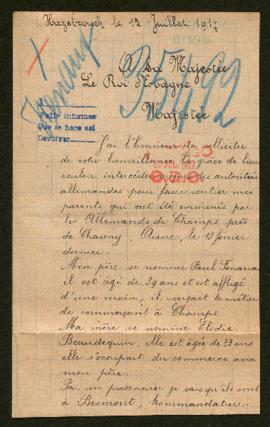 Hazebrouck le 12 Juillet 1917
A Sa Majestée
Le Roi d'Espagne
Majestée
35492
Pedir informes
Que se hace así
Devolver
J'ai l'honneur de solliciter
de votre bienveillance la grâce de bien
vouloir intercéder auprès des autorités
allemandes pour faire rentrer mes
parents qui ont été emmenés par
les Allemands de Champs, près
de Chauny Aisne, le 19 février
dernier.
Mon père se nomme Paul
il est âgé de 39 ans et est affligé
d'une main, il exerçait le métier
de commerçant à Champs
Ma mère se nomme Elodie
Beaudequin, elle est âgée de 33 ans
elle s'occupait du commerce avec
mon père.
Par un prisonnier je sais qu'ils sont
à Besmont, Kommandatur